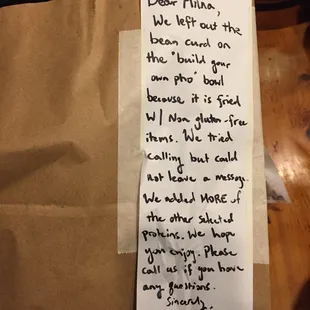 Dear Milna,
We left out the
bean curd on
the "build your
own pho" bowl
because it is fried
W/ Non gluten-free
items. We tried
calling but could
not leave a message.
We added MORE of
the other selected
proteins. We hope
you enjoy. Please
call us if you have
any questions.
Sincerely,